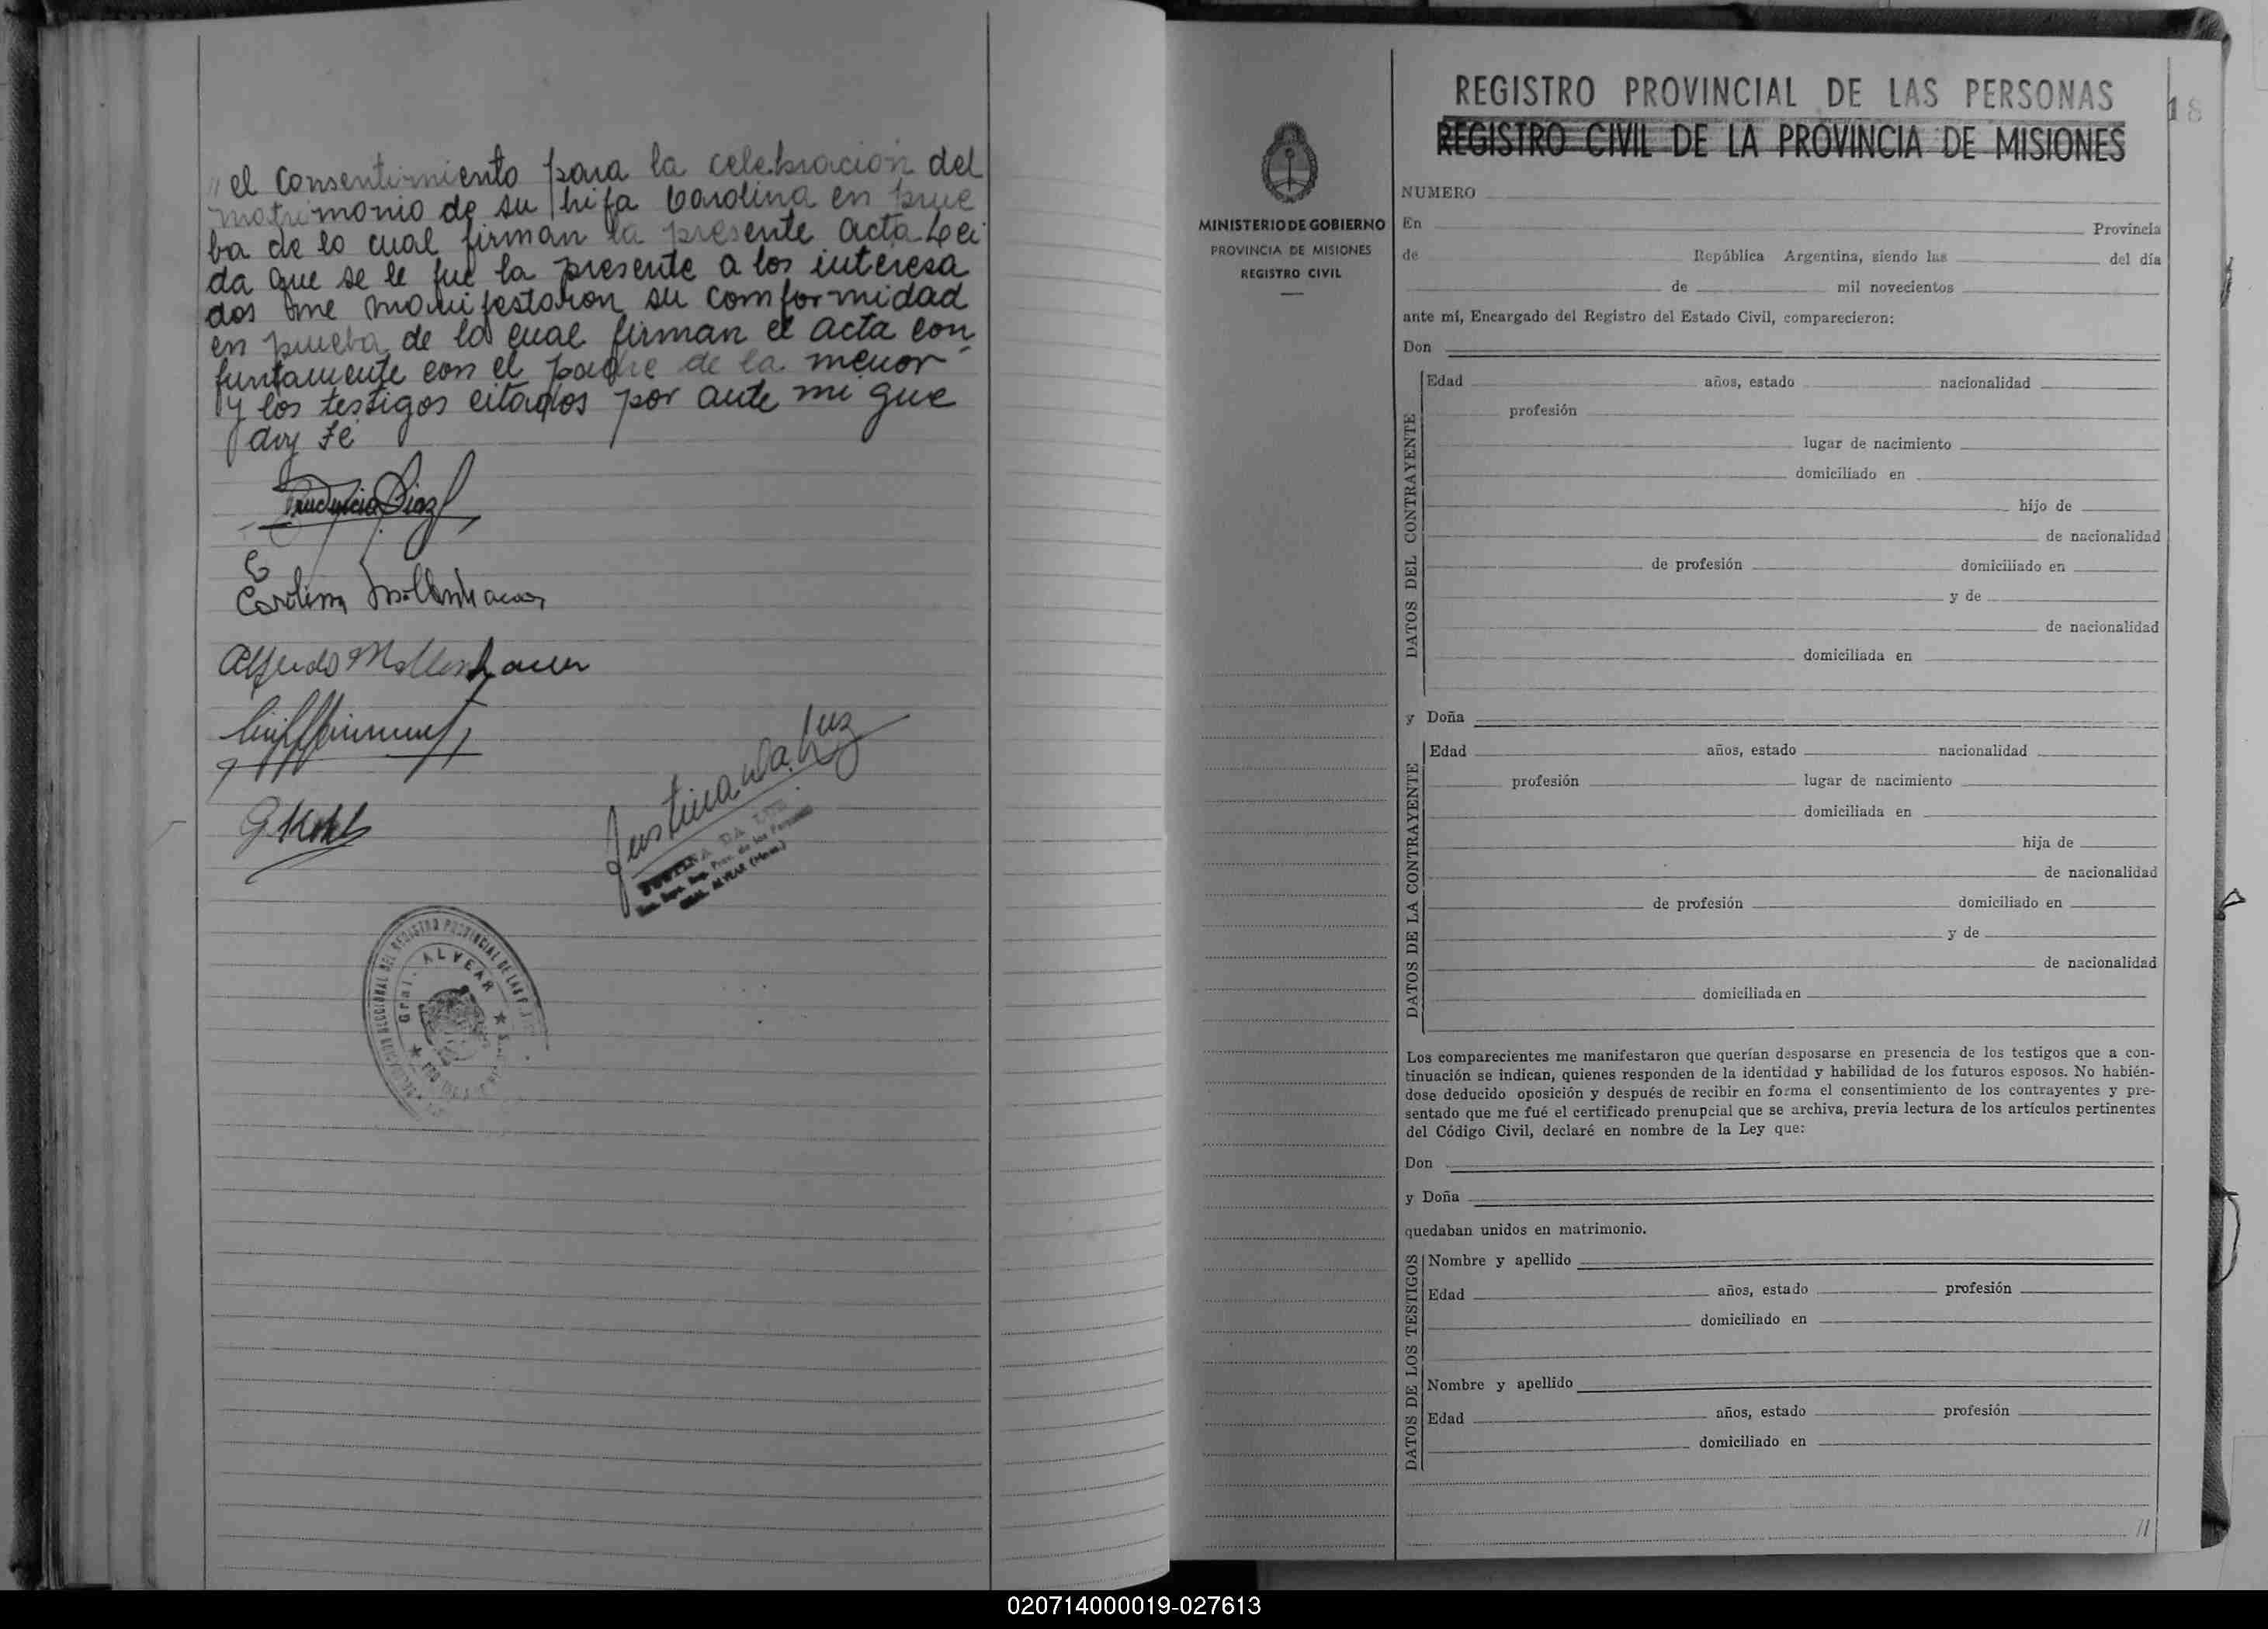 el consentimiento para la celebración del
matrimonio de su hija Carolina en prue
ba de lo cual firman la presente acta Lei
da que se le fue la presente a los interesa
dos me manifestaron su comformidad
en prueba de lo cual firman el acta con
juntamente con el padre de la menor
y los testigos citados por ante mi que
doy Fé
Prudencio Diaz
Carolina Mollenhauer
Alfredo Mollenhauer
Justina da Luz
JUSTINA DA LUZ
Enc. Reg. Prov. de las Personas
GRAL. ALVEAR (Mnes.)
DELEGACION SECCIONAL DEL REGISTRO PROVINCIAL DE LAS
Gral. ALVEAR
MINISTERIO DE GOBIERNO
PROVINCIA DE MISIONES
REGISTRO CIVIL
18
REGISTRO PROVINCIAL DE LAS PERSONAS
REGISTRO CIVIL DE LA PROVINCIA DE MISIONES
NUMERO
En Provincia
de República Argentina, siendo las del día
de mil novecientos
ante mí, Encargado del Registro del Estado Civil, comparecieron:
Don
DATOS DEL CONTRAYENTE
Edad años, estado nacionalidad
profesión
lugar de nacimiento
domiciliado en
hijo de
de nacionalidad
de profesión domiciliado en
y de
de nacionalidad
domiciliada en
y Doña
DATOS DE LA CONTRAYENTE
Edad años, estado nacionalidad
profesión lugar de nacimiento
domiciliada en
hija de
de nacionalidad
de profesión domiciliado en
y de
de nacionalidad
domiciliada en
Los comparecientes me manifestaron que querían desposarse en presencia de los testigos que a con-
tinuación se indican, quienes responden de la identidad y habilidad de los futuros esposos. No habién-
dose deducido oposición y después de recibir en forma el consentimiento de los contrayentes y pre-
sentado que me fué el certificado prenupcial que se archiva, previa lectura de los artículos pertinentes
del Código Civil, declaré en nombre de la Ley que:
Don
y Doña
quedaban unidos en matrimonio.
DATOS DE LOS TESTIGOS
Nombre y apellido
Edad años, estado profesión
domiciliado en
Nombre y apellido
Edad años, estado profesión
domiciliado en
//
020714000019-027613